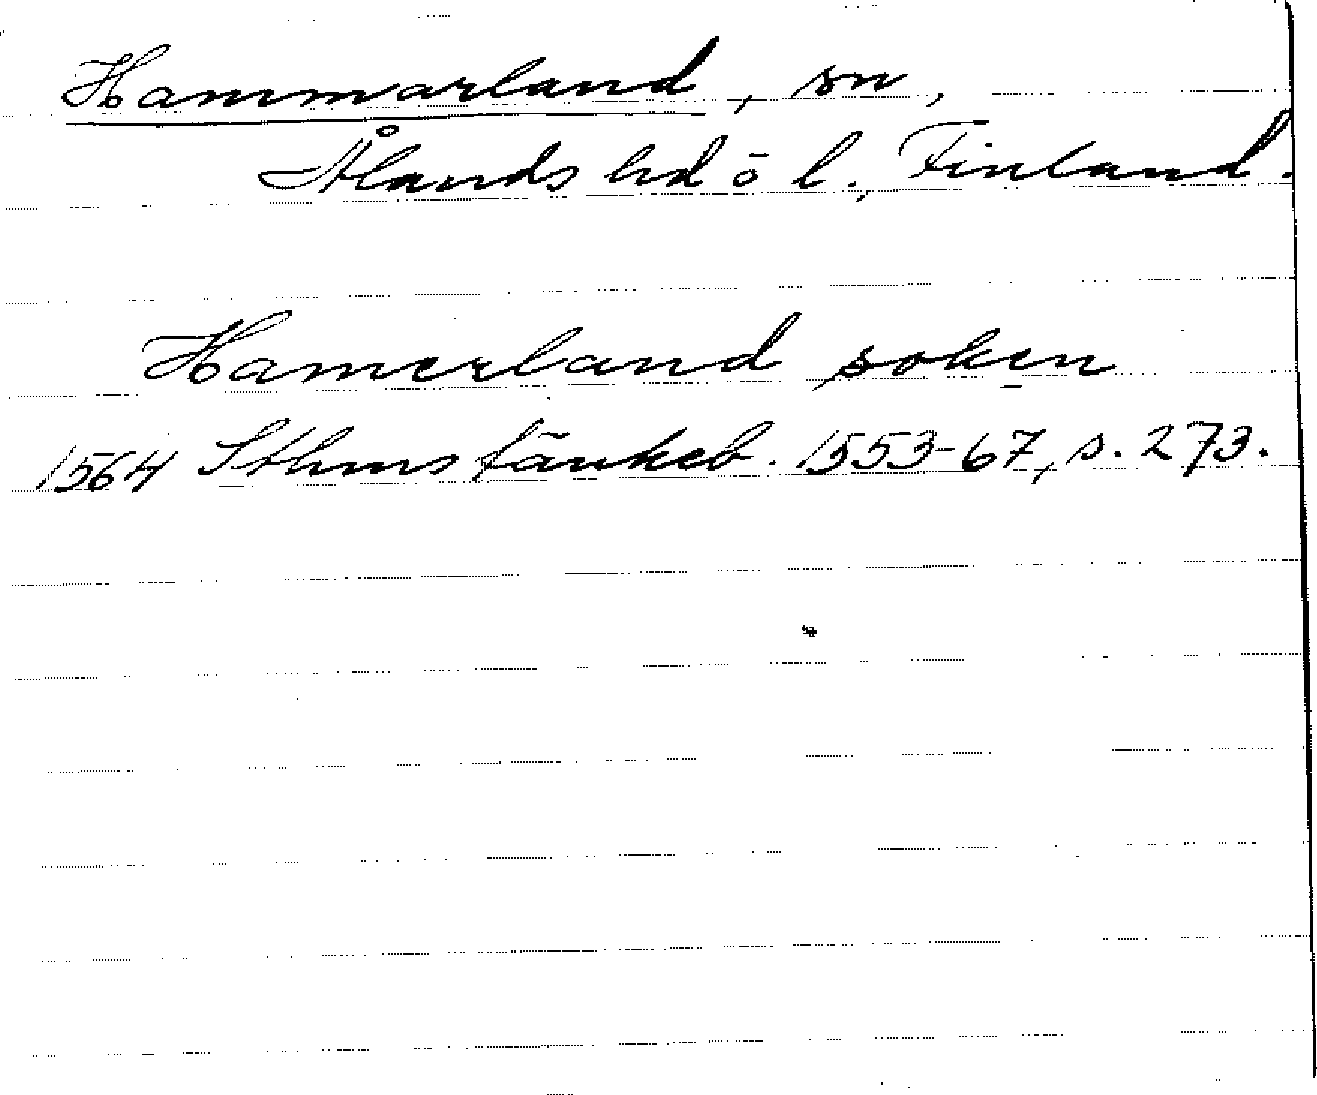 Hammarland, sn,
Ålands hd ö l., Finland.
Hamerland soken
1564 Sthms tänkeb. 1553-67, s. 273.